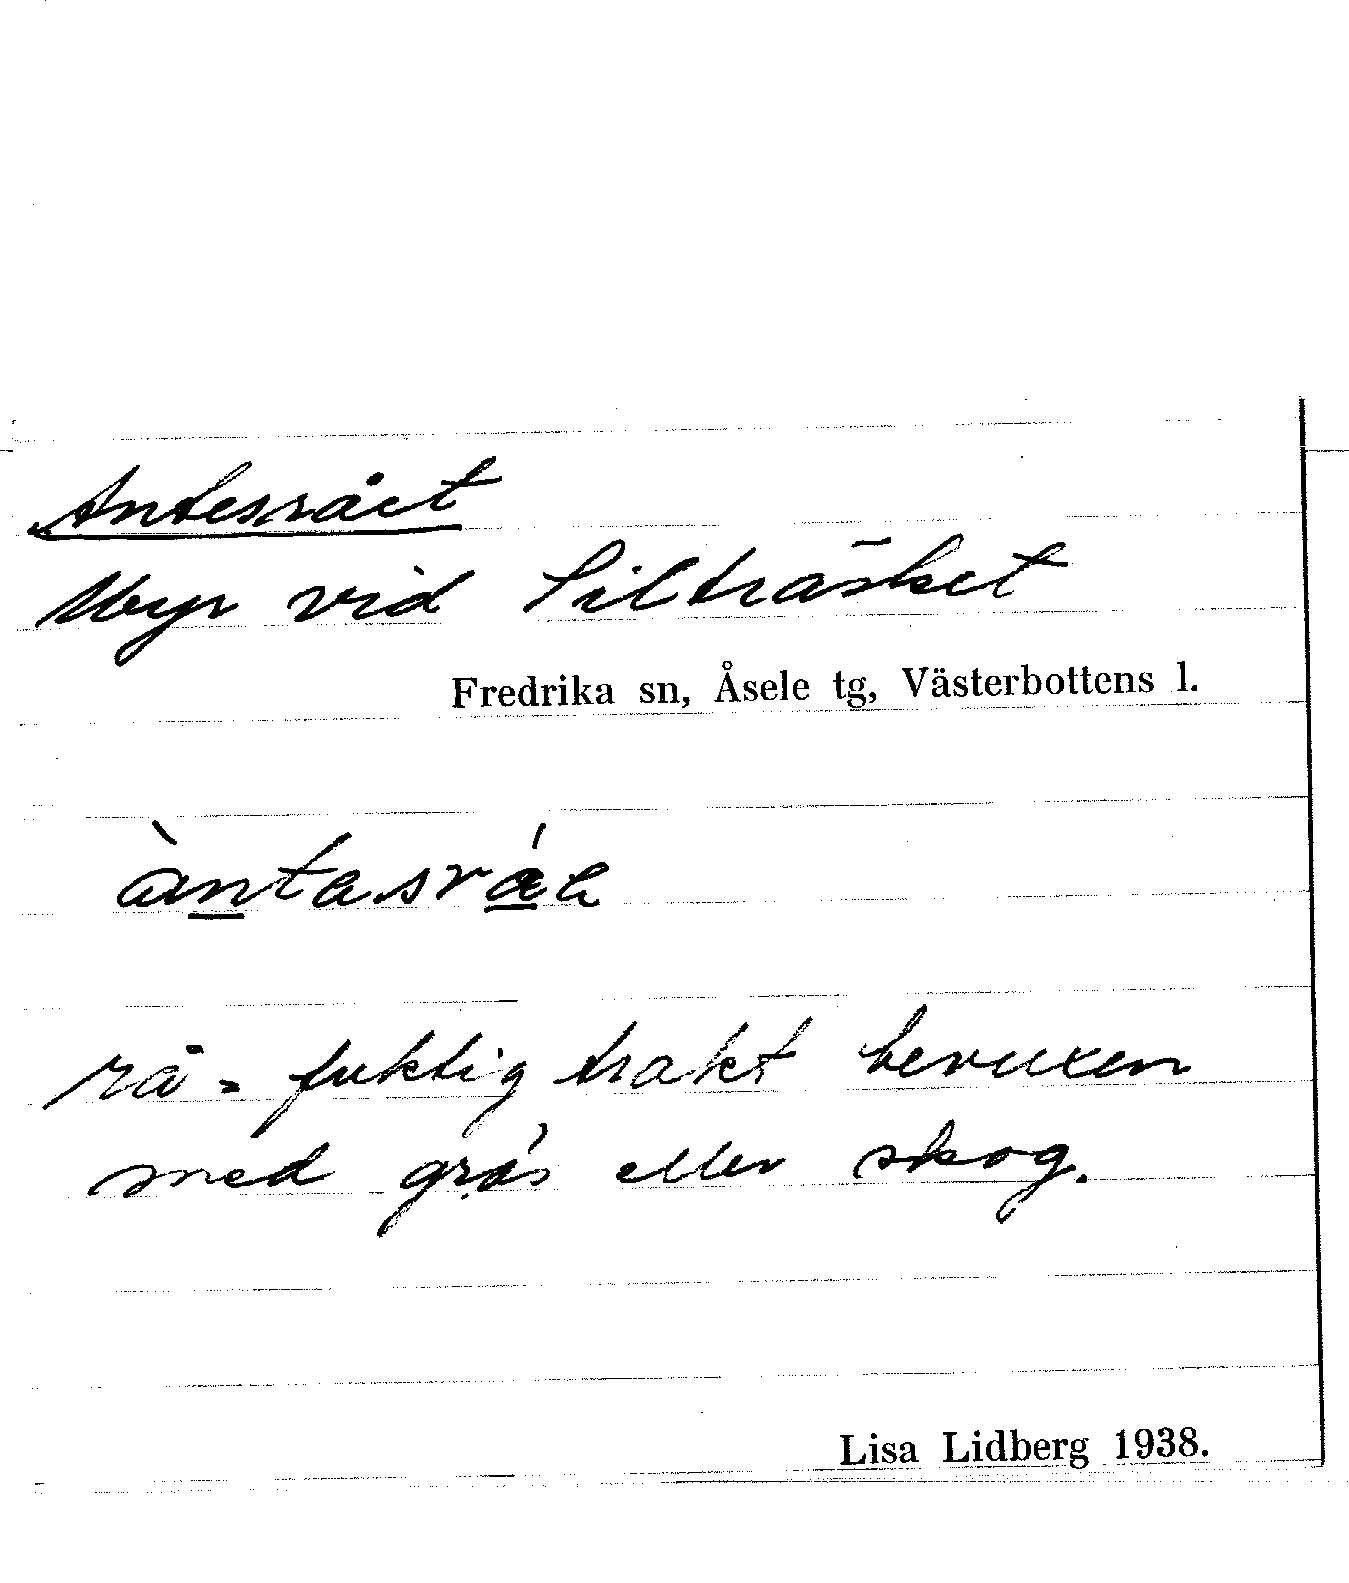 Antesrået
Myr vid Silträsket
Fredrika sn, Åsele tg, Västerbottens l.
àntasráa
rå = fuktig trakt bevuxen
med gräs eller skog.
Lisa Lidberg 1938.